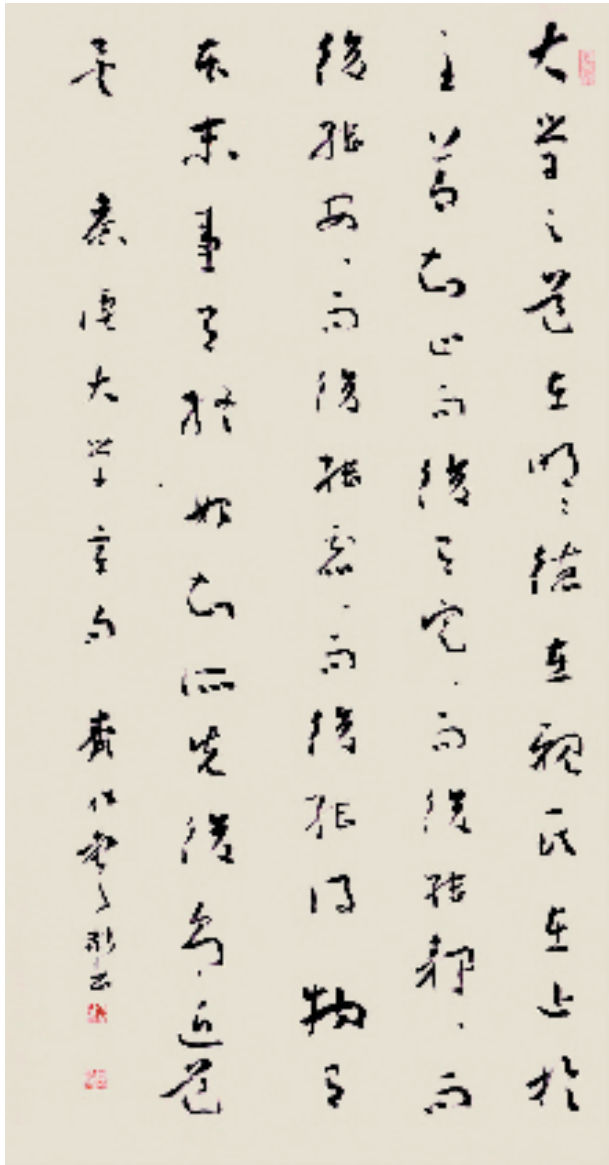 大學之道在明〻德在親民在止於
至善知止而後有定〻而後能静〻而
後能安〻而後能慮〻而後能得物有
本末事有終始知所先後則近道
矣 大學章句